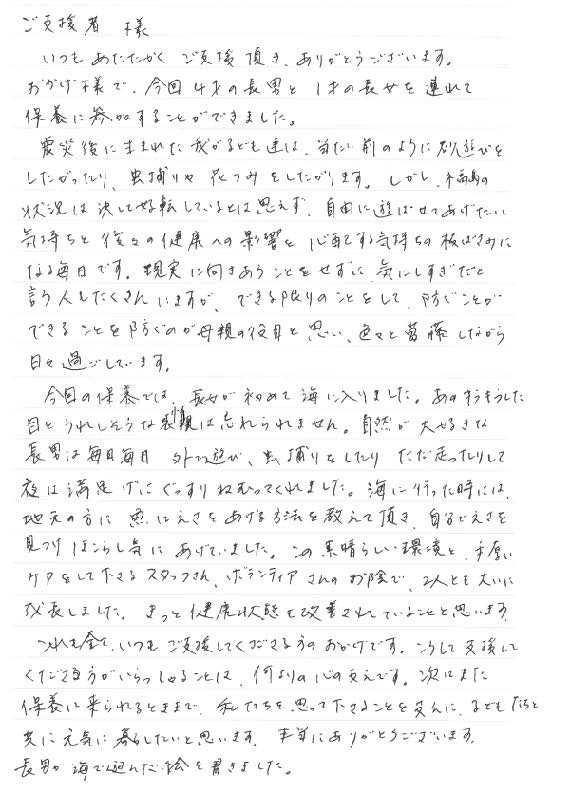 ご支援者 様
いつも あたたかく ご支援 頂き、ありがとうございます。
おかげ様で、今回 4才の長男と 1才の長女を 連れて
保養に参加することができました。
震災後に生まれた 我が子ども達は、当たり前のように 砂遊びを
したがったり、虫捕りや 花つみをしたがります。しかし、福島の
状況は 決して好転しているとは思えず、自由に遊ばせてあげたい
気持ちと 後々の健康への影響を 心配する気持ちの 板ばさみに
なる毎日です。現実に向きあうことをせずに、気にしすぎだと
言う人もたくさんいますが、できる限りのことをして、防ぐことが
できることを防ぐのが母親の役目と思い、色々と葛藤しながら
日々過ごしています。
今回の保養では、長女が初めて海に入りました。あのキラキラした
目とうれしそうな表情は忘れられません。自然が大好きな
長男は毎日毎日 外で遊び、虫捕りをしたり ただ走ったりして
夜は満足げにぐっすりねむってくれました。海に行った時には、
地元の方に 魚にえさをあげる方法を教えて頂き、自分でえさを
見つけ ほこらし気に あげていました。この素晴らしい環境と、手厚い
ケアをして下さるスタッフさん、ボランティアさんのお陰で、2人とも大いに
成長しました。きっと健康状態も改善されていることと思います。
これも全て、いつもご支援してくださる方のおかげです。こうして支援して
くださる方がいらっしゃることは、何よりの心の支えです。次にまた
保養に来られるときまで、私たちを思って下さることを支えに、子どもたちと
共に元気に暮らしたいと思います。本当にありがとうございます。
長男が海で遊んだ絵を書きました。